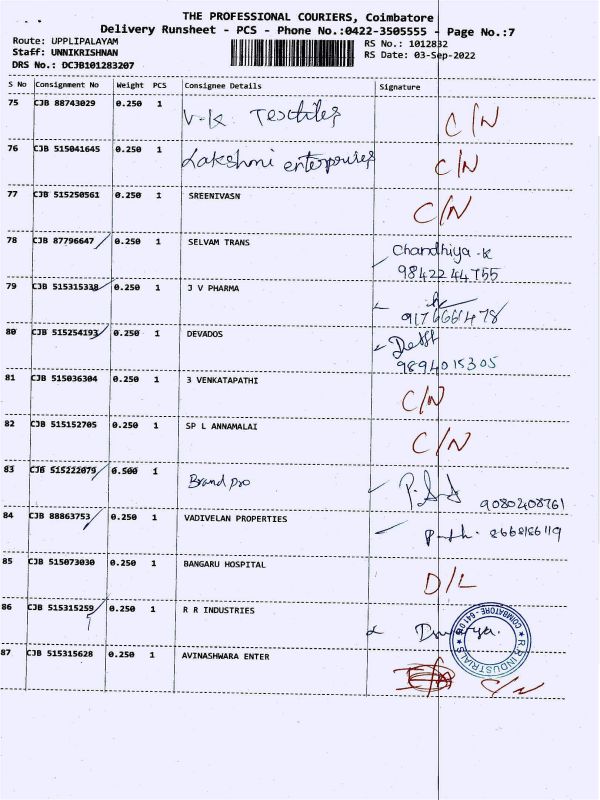 THE PROFESSIONAL COURIERS, Coimbatore
Delivery Runsheet - PCS - Phone No.:0422-3505555 - Page No.:7
Route: UPPLIPALAYAM RS No.: 1012832
Staff: UNNIKRISHNAN RS Date: 03-Sep-2022
DRS No.: DCJB101283207
S No Consignment No Weight PCS Consignee Details Signature
75 CJB 88743029 0.250 1 V.K. Textiles C/N
76 CJB 515041645 0.250 1 Lakshmi enterprises C/N
77 CJB 515250561 0.250 1 SREENIVASN C/N
78 CJB 87796647 0.250 1 SELVAM TRANS Chandhiya.K
9842244755
79 CJB 515315338 0.250 1 J V PHARMA
9176661478
80 CJB 515254193 0.250 1 DEVADOS
9894015305
81 CJB 515036304 0.250 1 3 VENKATAPATHI C/N
82 CJB 515152705 0.250 1 SP L ANNAMALAI C/N
83 CJB 515222079 0.500 1 Brand pro
9080208761
84 CJB 88863753 0.250 1 VADIVELAN PROPERTIES 8668186119
85 CJB 515073030 0.250 1 BANGARU HOSPITAL D/L
86 CJB 515315259 0.250 1 R R INDUSTRIES
R R INDUSTRIALS
COIMBATORE - 641 015
87 CJB 515315628 0.250 1 AVINASHWARA ENTER C/N